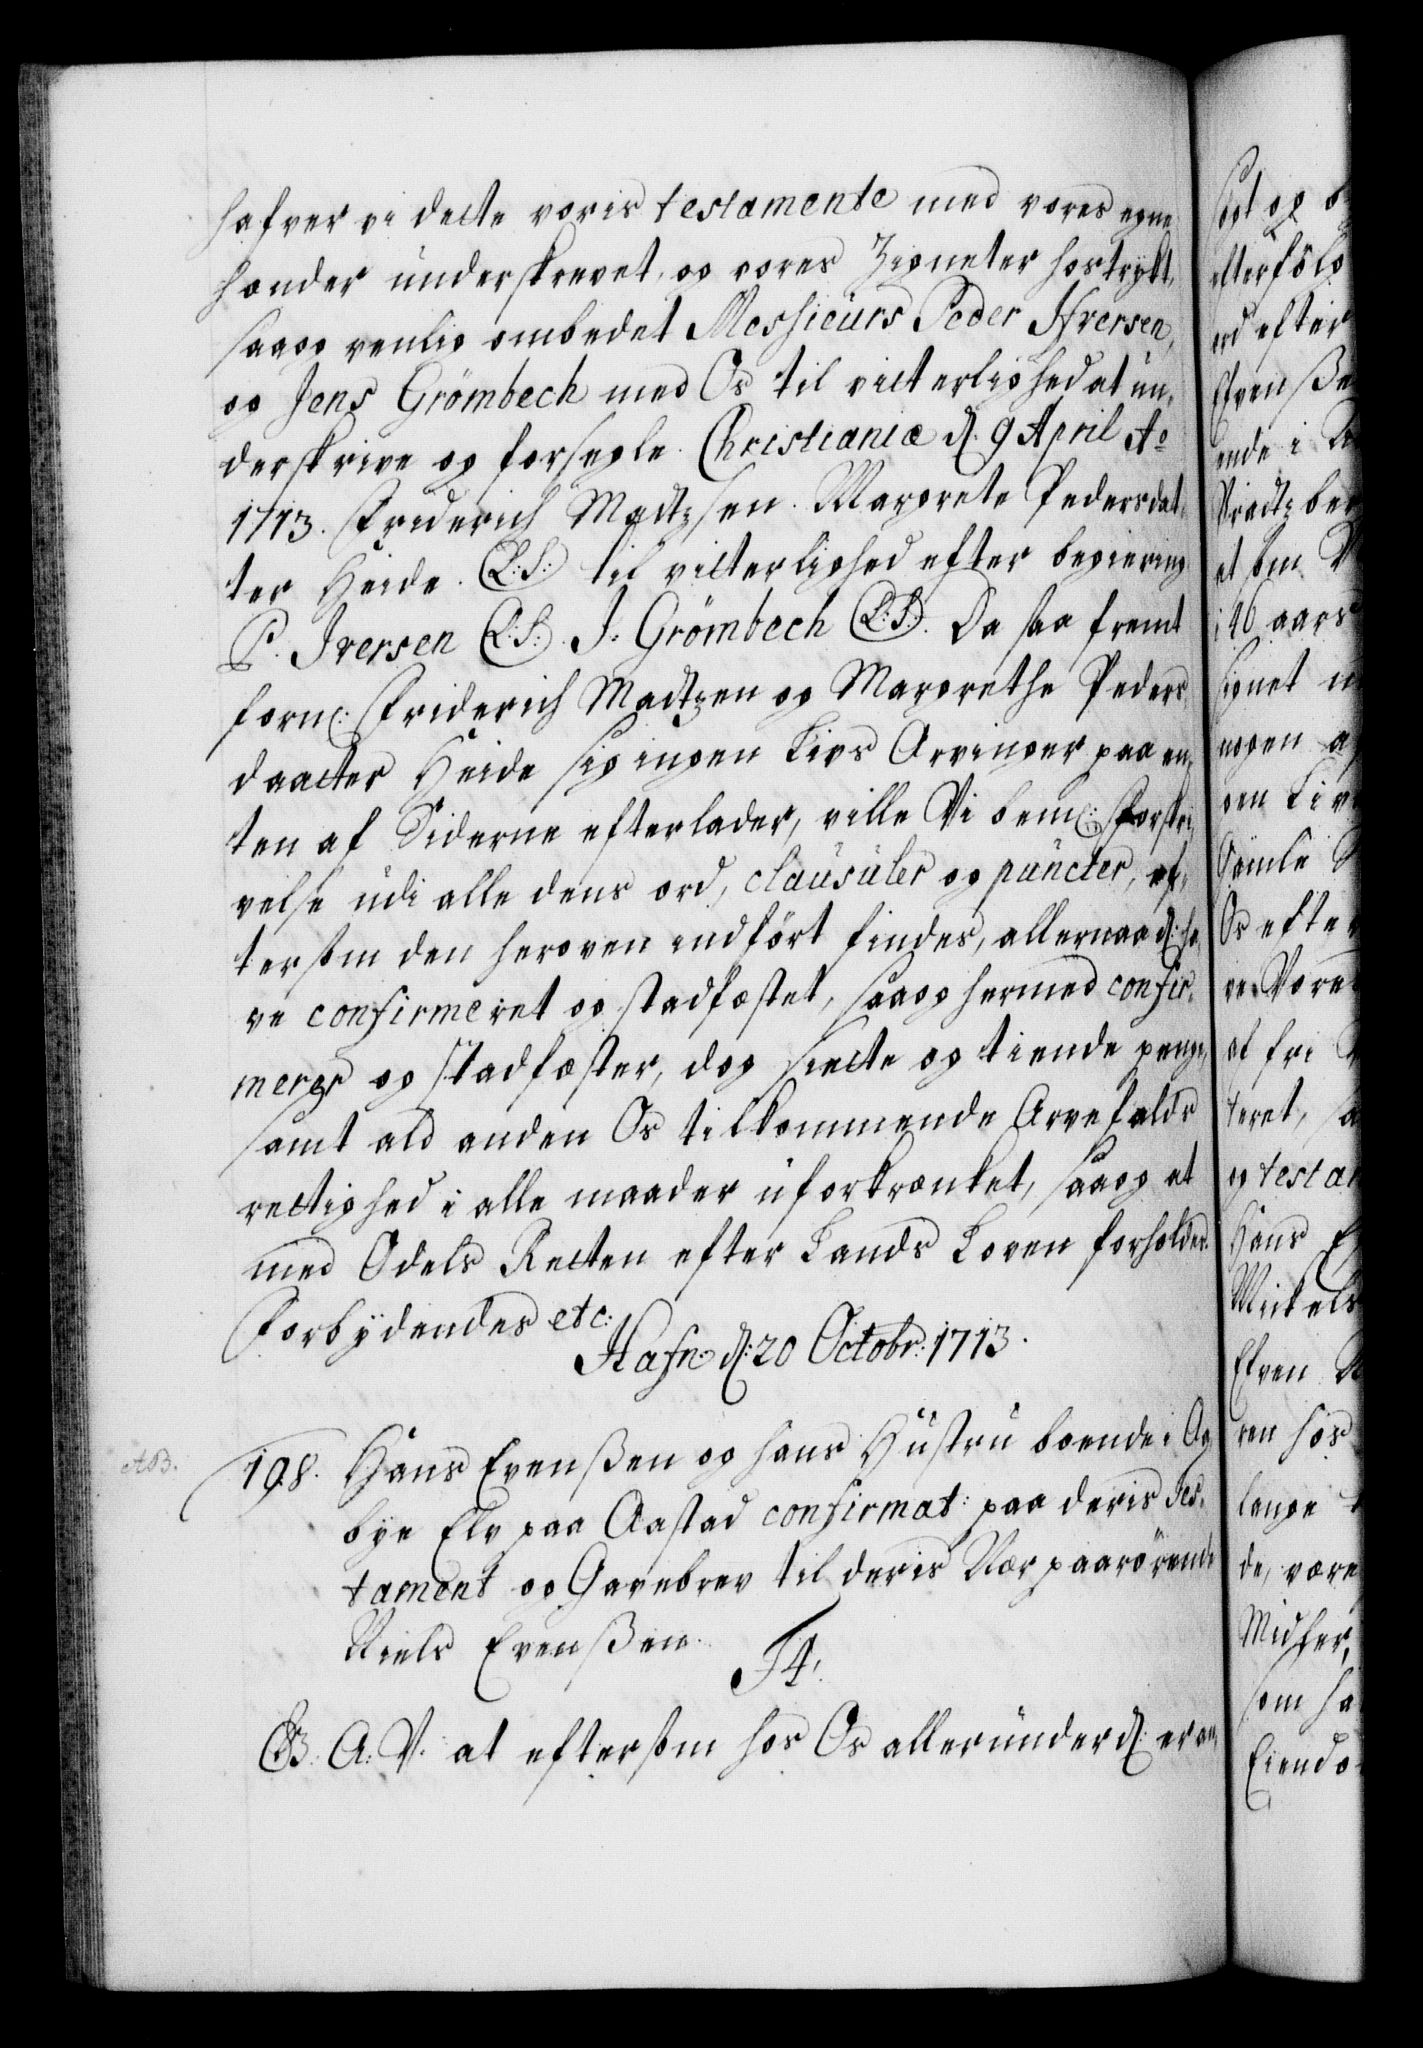 hafver vi dette voris testamente med vores egne
hænder underskrevet, og vores Zigneter hostrykt,
saaog venlig ombedet Messieurs Peder Ifversen,
og Jens Grömbech med Os til vitterlighed at un-
derskrive og forsegle. Christianiæ d. 9 April Ao
1713. Friderich Madtzsen. Margrete Pedersdat-
ter Heide. (L.S.) til vitterlighed efter begiering
P. Iversen (L.S.) J. Grömbech (L.S.). Da saa fremt
forne: Friderich Madtzen og Margrethe Peders
daatter Heide sig ingen Livs Arvinger paa en-
ten af Siderne efterlader, ville Vi bem: Forskri-
velse udi alle dens ord, clausuler og puncter, ef-
tersom den heroven indført findes, allernaad: ha-
ve confirmeret og stadfæstet, saaog hermed confir-
merer og stadfæster, dog siette og tiende penge,
samt ald anden Os tilkommende Arvefalds
rettighed i alle maader uforkrænket, saaog at
med Odels Retten efter Lands Loven forholdes.
Forbydendes etc:
Hafn: d: 20 Octobr: 1713.
AB.
198. Hans Evenßen og hans Hustru boende i Ag
bye Elv paa Aastad confirmat: paa deris Tes-
tament og Gavebrev til deris Nær paarørende
Niels Evenßen.
F4.
G.B. A: V. at eftersom hos Os allerunderd: er an-